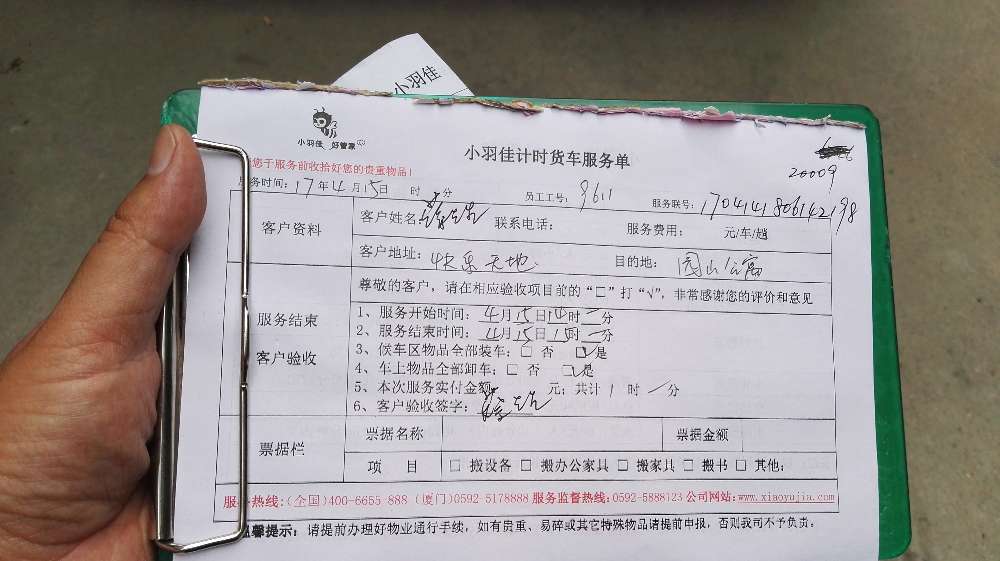 小羽佳
小羽佳 好管家
小羽佳计时货车服务单
20009
您于服务前收拾好您的贵重物品!
服务时间: 17年4月15日 时 分 员工工号: 9611 服务联号: 170414180614298
客户资料
客户姓名 联系电话: 服务费用: 元/车/趟
客户地址: 快乐天地 目的地: 园山公寓
服务结束
客户验收
尊敬的客户, 请在相应验收项目前的“□”打“√”, 非常感谢您的评价和意见
1、服务开始时间: 4月15日14时一分
2、服务结束时间: 4月15日15时一分
3、候车区物品全部装车: □ 否 ☑是
4、车上物品全部卸车: □ 否 ☑是
5、本次服务实付金额 元; 共计 1 时 一分
6、客户验收签字:
票据栏
票据名称 票据金额
项 目 □ 搬设备 □ 搬办公家具 □ 搬家具 □ 搬书 □ 其他:
服务热线:(全国)400-6655 888 (厦门)0592-5178888 服务监督热线:0592-5888123 公司网站:www.xiaoyujia.com
温馨提示: 请提前办理好物业通行手续, 如有贵重、易碎或其它特殊物品请提前申报, 否则我司不予负责。